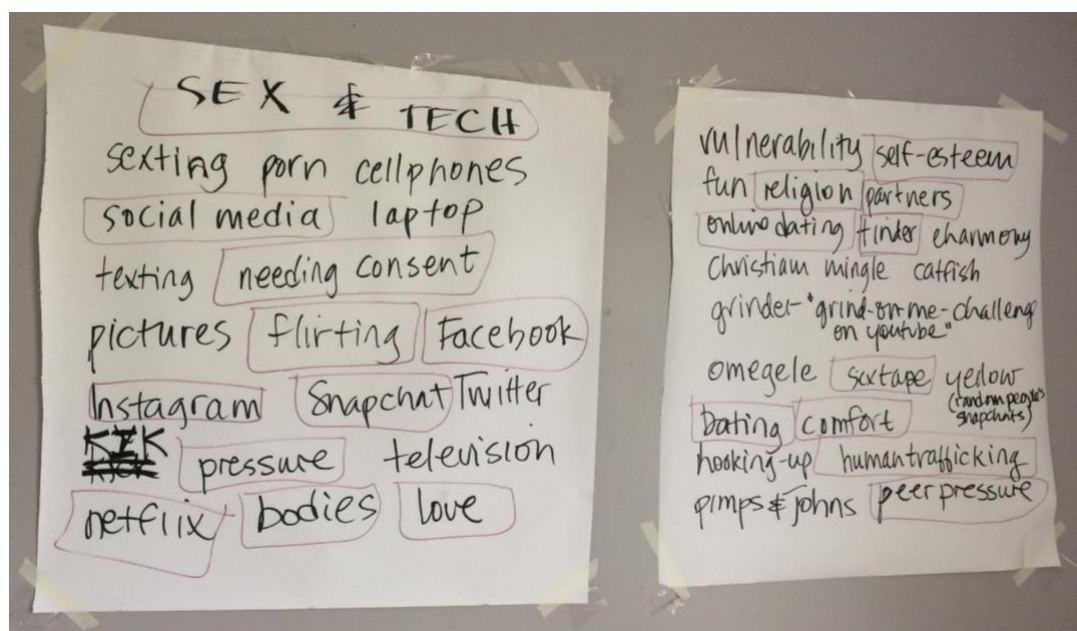 SEX & TECH
sexting porn cellphones
social media laptop
texting needing consent
pictures flirting Facebook
Instagram Snapchat Twitter
KIK pressure television
netflix bodies love
vulnerability self-esteem
fun religion partners
online dating tinder eharmony
Christian mingle catfish
grinder- "grind-on-me-challeng
on youtube"
omegele sextape yellow
(random people's
snapchats)
Dating comfort
hooking-up human trafficking
pimps & johns peer pressure